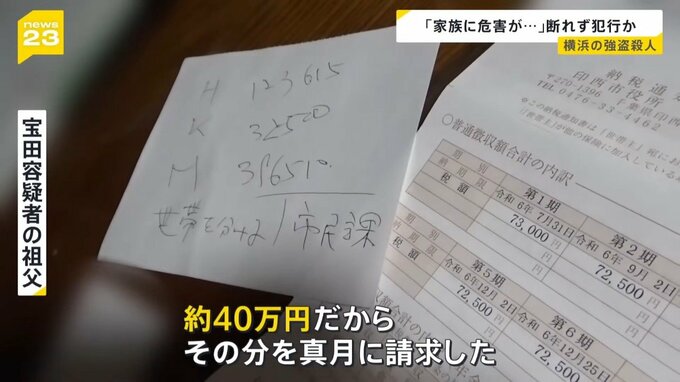 news
23
「家族に危害が…」断れず犯行か
横浜の強盗殺人
宝田容疑者の祖父
H 123615
K 32500
世帯を分ける/市民課
印西市役所
〒270-1396
TEL 0476-33-4462
〇普通徴収額合計の内訳
期別
納期限
税額
第1期
令和6年7月31日
73,000
円
第2期
令和6年9月2日
72,500
第5期
令和6年12月2日
72,500
円
第6期
令和6年12月25日
72,500
約40万円だから
その分を真月に請求した